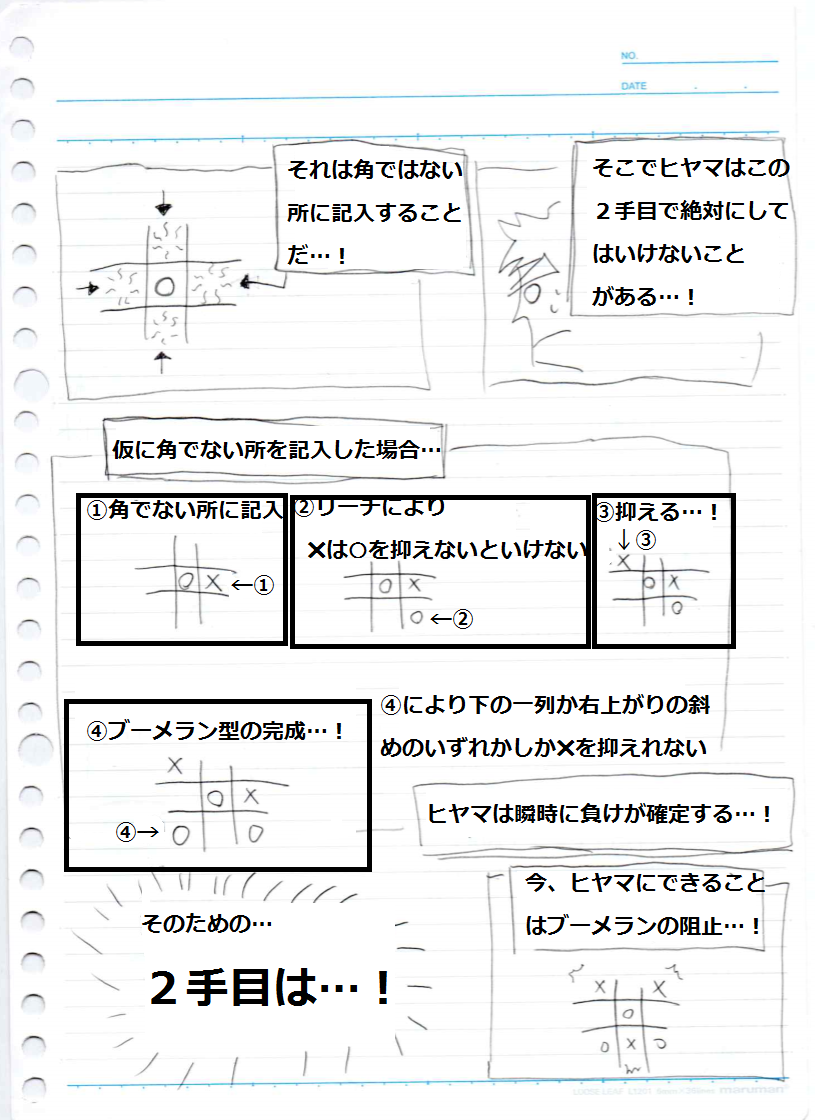 NO.
DATE
そこでヒヤマはこの
２手目で絶対にして
はいけないこと
がある…！
それは角ではない
所に記入すること
だ…！
○
仮に角でない所を記入した場合…
①角でない所に記入
○×←①
②リーチにより
×は○を抑えないといけない
○×
○←②
③抑える…！
↓③
×
○×
○
④ブーメラン型の完成…！
×
○×
④→○ ○
④により下の一列か右上がりの斜
めのいずれかしか×を抑えれない
ヒヤマは瞬時に負けが確定する…！
今、ヒヤマにできること
はブーメランの阻止…！
× ×
○
○×○
そのための…
２手目は…！
maruman